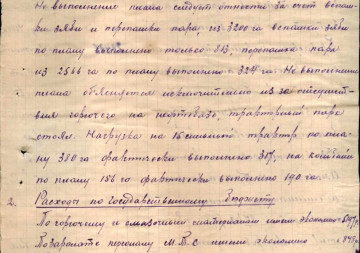 Не выполнение плана следует отности за счет вспаш-
ки зяби и перепашки пара, из 3200 га вспашки зяби
по плану выполнено только 813, перепашка пара
из 2566 га по плану выполнено 324 га. Не выполнение
плана об'ясняется исключительно из за отсутст-
вия горючего на нефтебазе, тракторный парк
стоял. Нагрузка на 15 сильный трактр по пла-
ну 380 га фактически выполнено 387, на комбайн
по плану 156 га фактически выполнено 190 га.
2. Расходы по Государственному Бюджету
По горючему и смазочным материалам имеем экономию
Возарплате персоналу М.Т.С имеем экономию